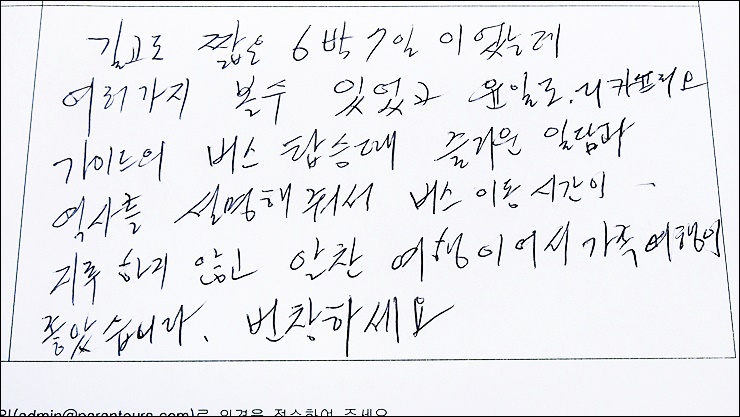 길고도 짧은 6박7일 이었는데
여러가지 볼수 있었고 윤일로.디카프리오
가이드의 버스 탑승때 즐거운 입담과
역사를 설명해 줘서 버스 이동 시간이
지루 하지 않고 알찬 여행이어서 가족여행이
좋았습니다. 번창하세요
(admin@parantours.com)로 의견을 접수하여 주세요